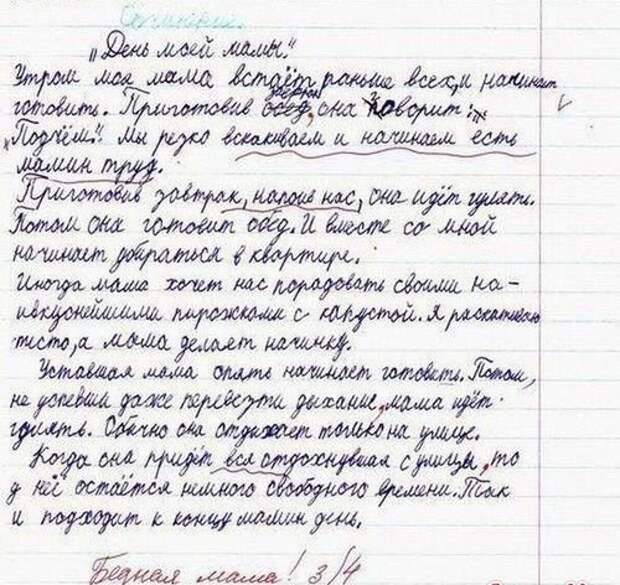 Сочинение.
„День моей мамы."
Утром моя мама встаёт раньше всех, и начинает
готовить. Приготовив завтрак обед, она говорит:
„Подъём!" Мы резко вскакиваем и начинаем есть
мамин труд.
Приготовив завтрак, напоив нас, она идёт гулять.
Потом она готовит обед. И вместе со мной
начинает убираться в квартире.
Иногда мама хочет нас порадовать своими на-
ивкуснейшими пирожками с капустой. Я раскатываю
тесто, а мама делает начинку.
Уставшая мама опять начинает готовить. Потом,
не успевши даже перевезти дыхание, мама идёт
гулять. Обычно она отдыхает только на улице.
Когда она придёт вся отдохнувшая с улицы, то
у неё остаётся немного свободного времени. Так
и подходит к концу мамин день.
Бедная мама! 3/4